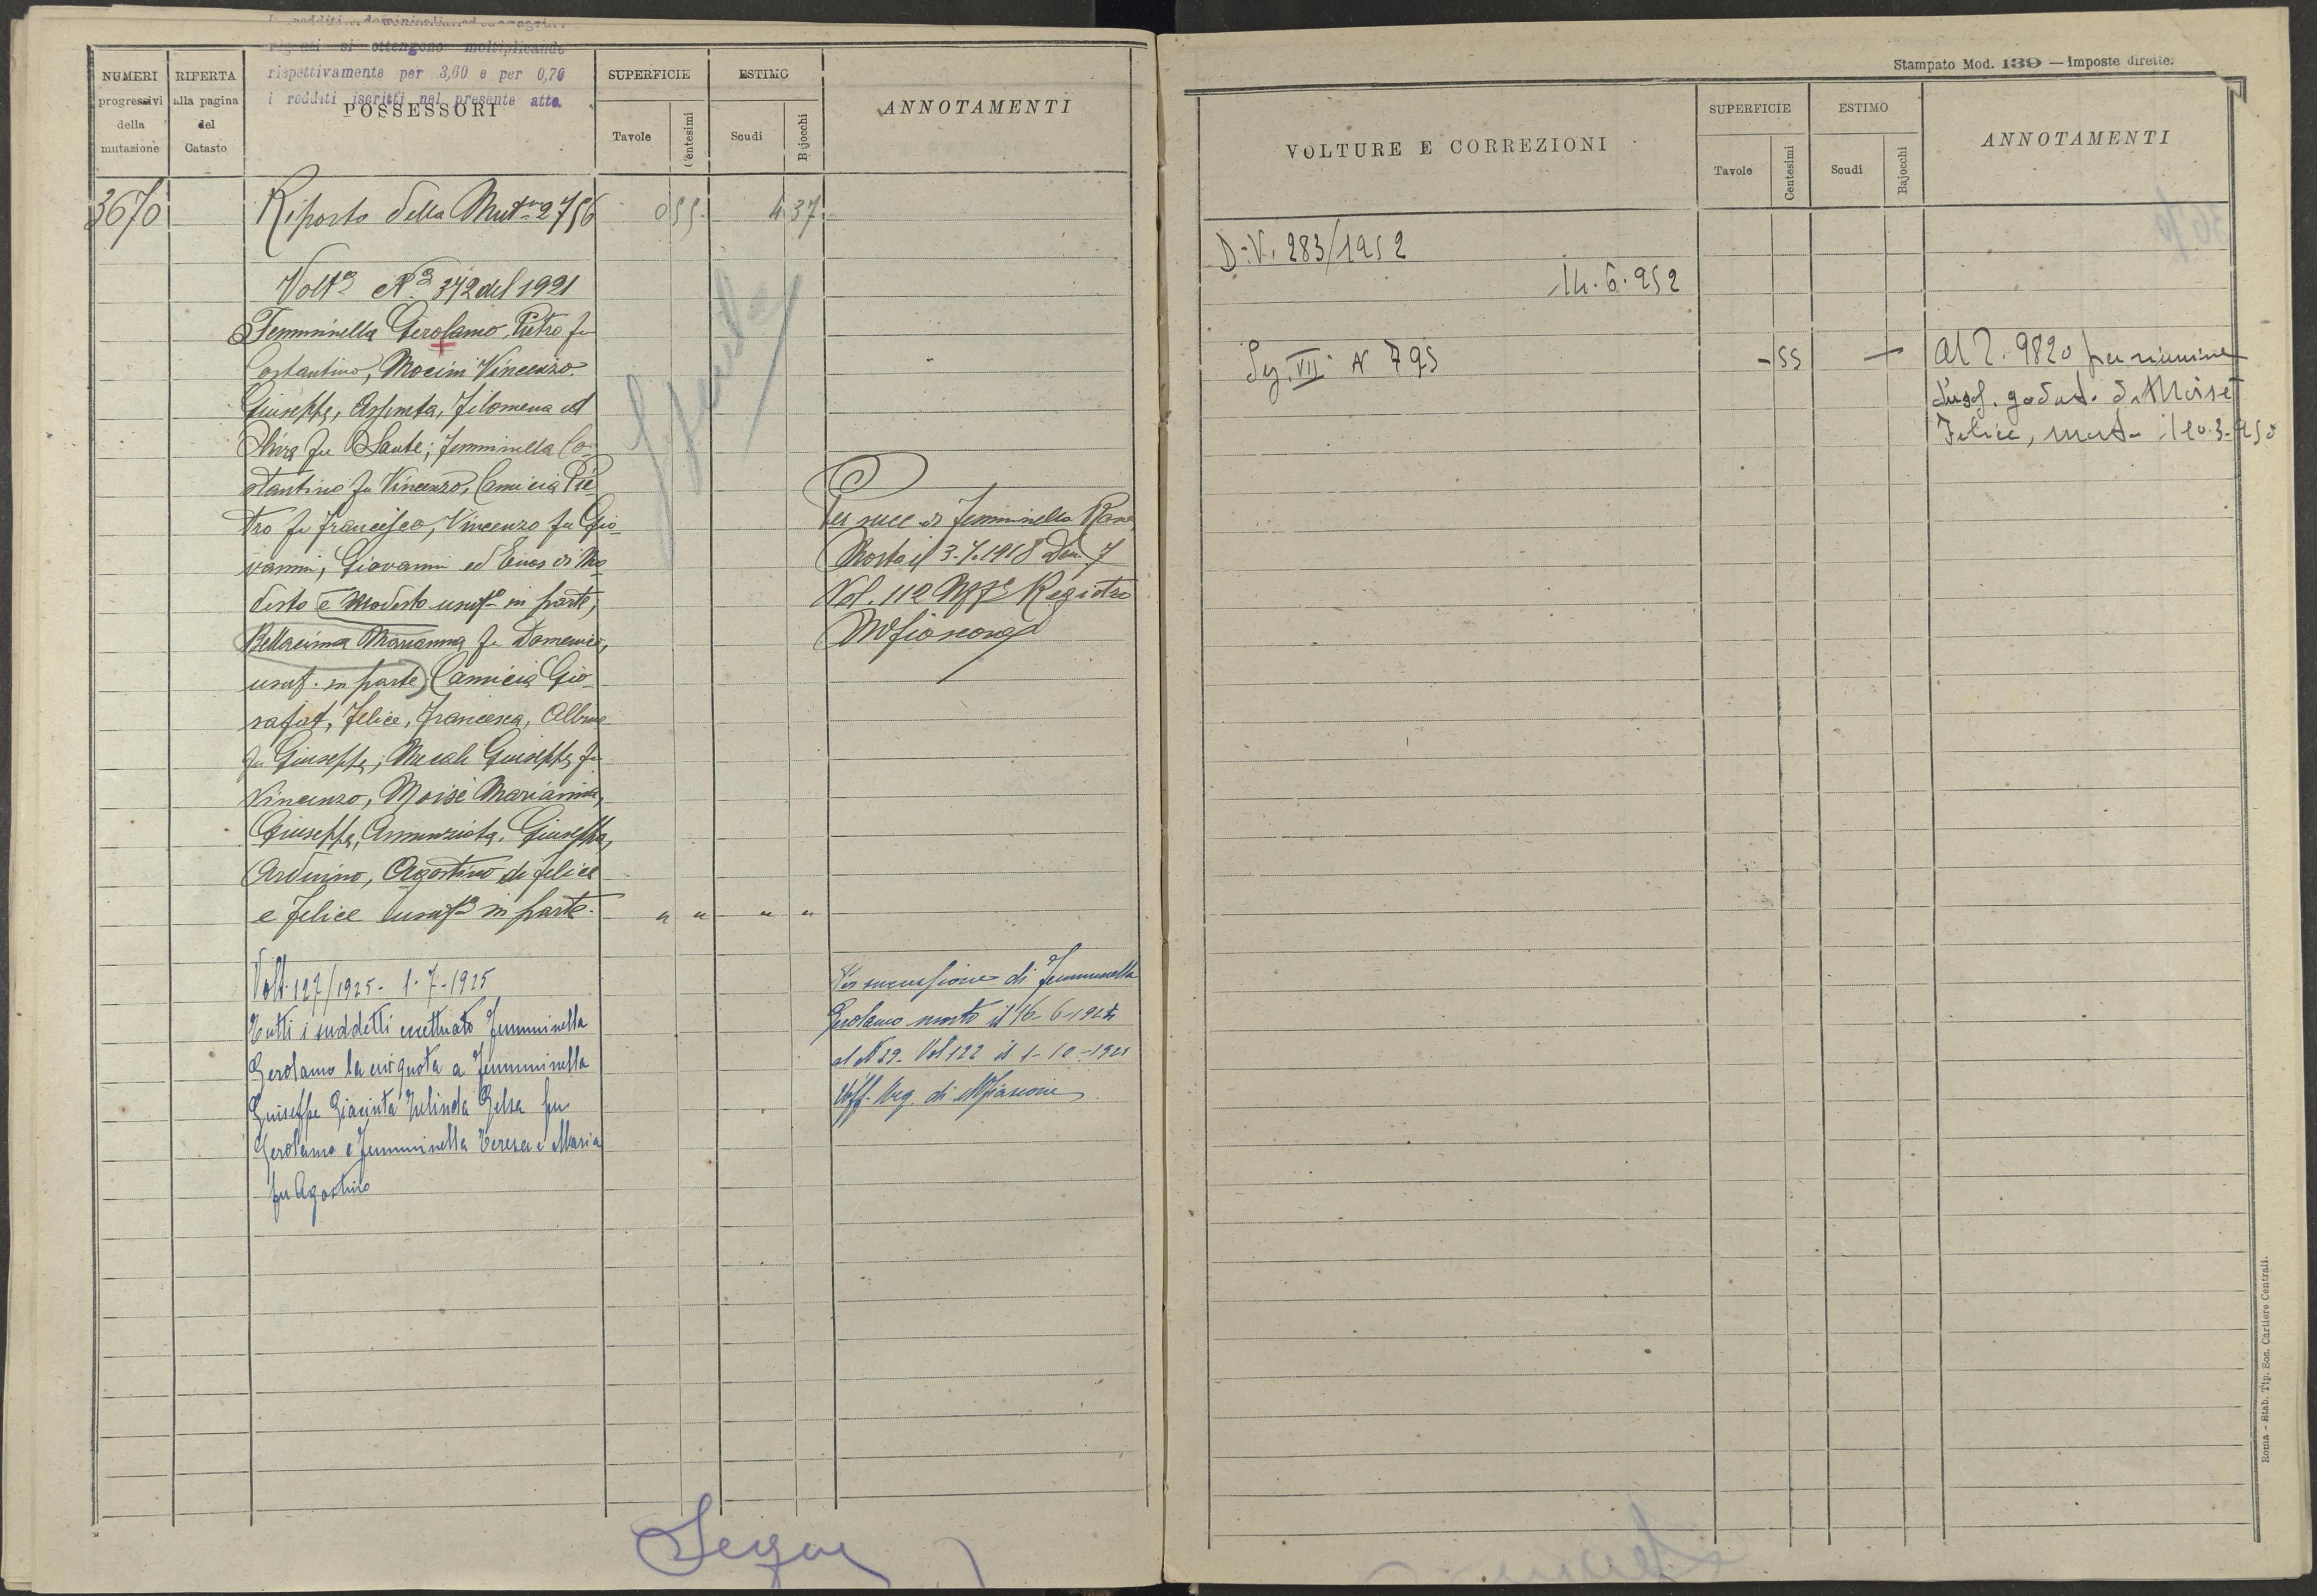 I redditi dominicali ed agrari
si ottengono moltiplicando
rispettivamente per 3,60 e per 0,70
i redditi iscritti nel presente atto.
NUMERI progressivi della mutazione
RIFERTA alla pagina del Catasto
POSSESSORI
SUPERFICIE
Tavole
Centesimi
ESTIMO
Scudi
Bajocchi
ANNOTAMENTI
3670
Riporto della Mutne 2756 0 55 4 37
Volta No 342 del 1921
Femminella Gerolamo, Pietro fu
Costantino, Mocini Vincenzo
Giuseppe, Assunta, Filomena ed
fu Sante; Femminella Co-
stantino fu Vincenzo, Camicia Pie-
tro fu Francesco, Vincenzo fu Gio-
vanni, Giovanni ed Enos di Mo-
desto e Modesto usufo in parte,
Bellacima Marianna fu Domenico,
usuf. in parte, Camicia Gio-
safat, Felice, Francesca, Albina
fu Giuseppe; Giuseppe fu
Vincenzo, Moisè Marianna,
Giuseppe, Annunziata, Giuseppa,
Arduino, Agostino di Felice
e Felice usufo in parte. " " " "
Per succ di Femminella Rosa
Morta il 3.7.1918 Den. 7
Vol. 112 Uffo Registro
Mfiascone
Volt. 127/1925 - 1-7-1925
Tutti i suddetti eccettuato Femminella
Gerolamo la cui quota a Femminella
Giuseppe Giacinta Gelsa fu
Gerolamo e Femminella Teresa e Maria
fu Agostino
Per successione di Femminella
Gerolamo morto il 16-6-1924
al N 29 - Vol 122 il 1-10-1924
Uff. Reg. di Mfiascone
Segue
Stampato Mod. 139 — Imposte dirette.
VOLTURE E CORREZIONI
SUPERFICIE
Tavole
Centesimi
ESTIMO
Scudi
Bajocchi
ANNOTAMENTI
D.V. 283/1952
14.6.952
Sez. VII N 795 - 55 —
Al P. 9820 per riunione
d'usuf. goduto da Moisè
Felice, morto il 20.3.950
Roma - Stab. Tip. Soc. Cartiere Centrali.